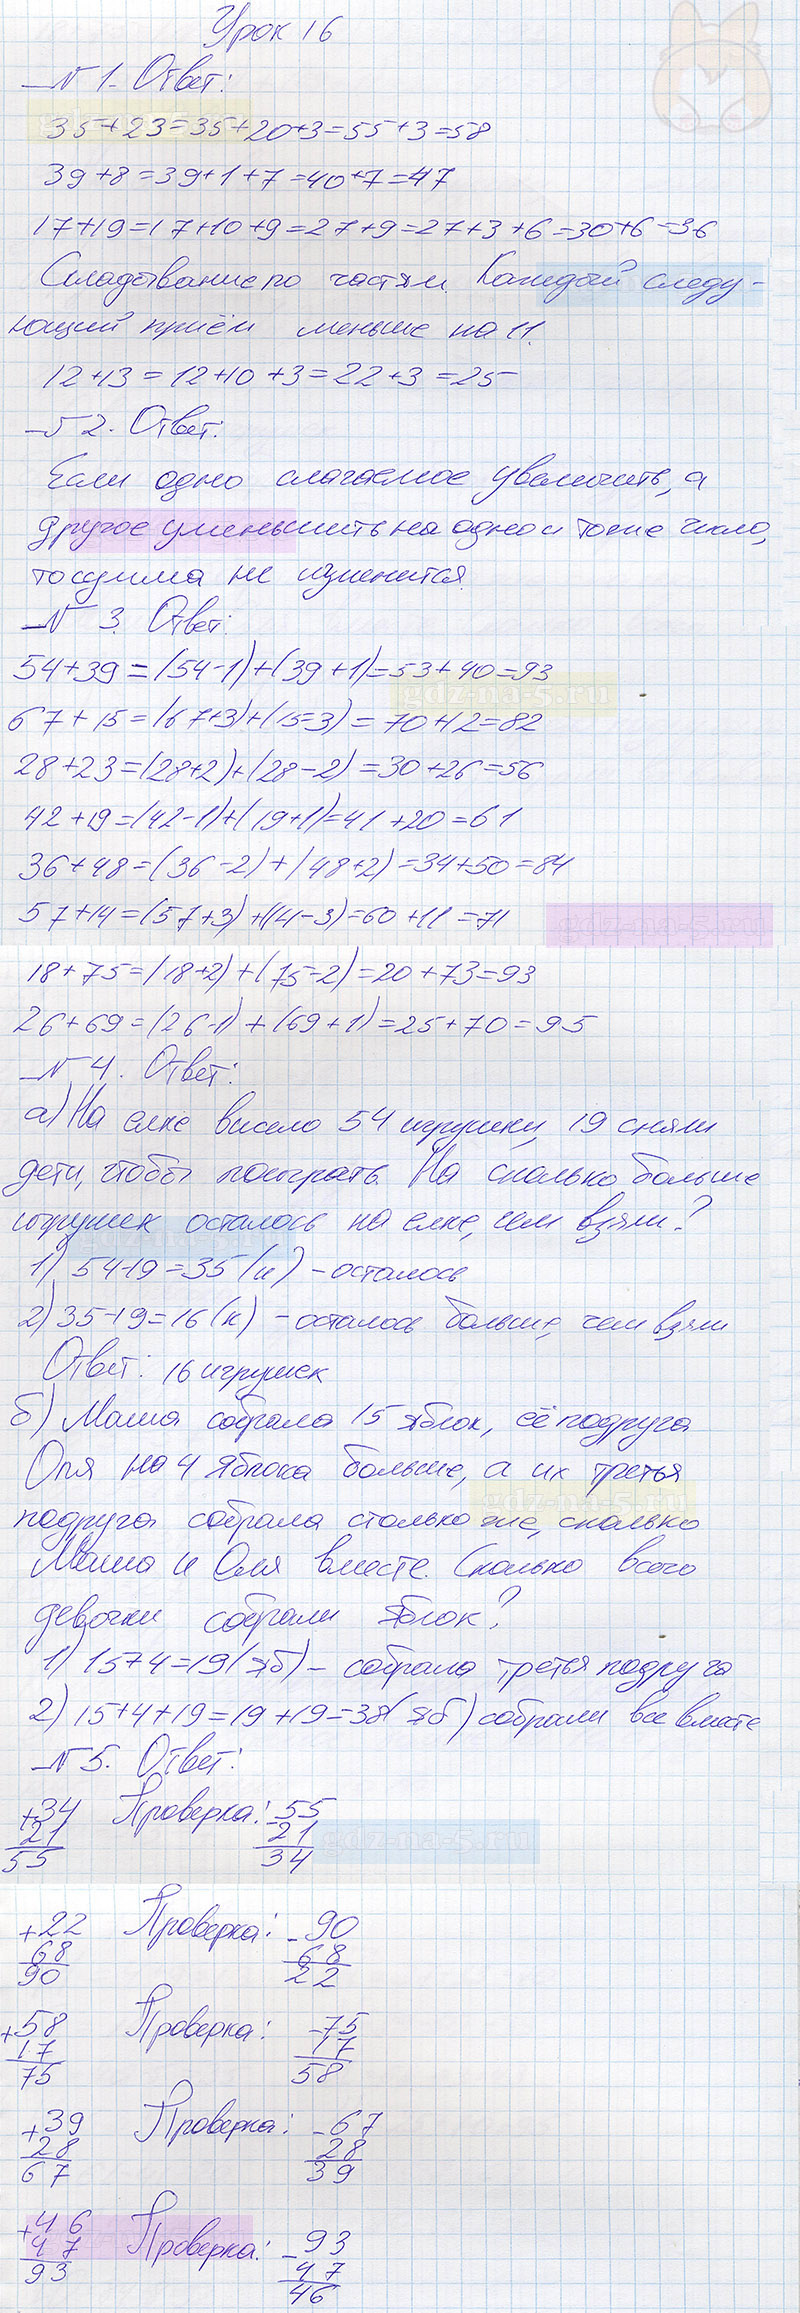 Урок 16
№ 1. Ответ:
35+23=35+20+3=55+3=58
39+8=39+1+7=40+7=47
17+19=17+10+9=27+9=27+3+6=30+6=36
Складывание по частям. Каждый следу-
ющий приём меньше на 11.
12+13=12+10+3=22+3=25
№ 2. Ответ:
Если одно слагаемое увеличить, а
другое уменьшить на одно и тоже число,
то сумма не изменится.
№ 3. Ответ:
54+39=(54-1)+(39+1)=53+40=93
gdz-na-5.ru
67+15=(67+3)+(15-3)=70+12=82
28+23=(28+2)+(28-2)=30+26=56
42+19=(42-1)+(19+1)=41+20=61
36+48=(36-2)+(48+2)=34+50=84
57+14=(57+3)+(14-3)=60+11=71
gdz-na-5.ru
18+75=(18+2)+(75-2)=20+73=93
26+69=(26-1)+(69+1)=25+70=95
№ 4. Ответ:
а) На елке висело 54 игрушки, 19 сняли
дети, чтобы поиграть. На сколько больше
игрушек осталось на елке, чем взяли?
1) 54-19=35(и) - осталось
2) 35-19=16(и) - осталось больше, чем взяли
Ответ: 16 игрушек
б) Маша собрала 15 яблок, её подруга
Оля на 4 яблока больше, а их третья
gdz-na-5.ru
подруга собрала столько же, сколько
Маша и Оля вместе. Сколько всего
девочки собрали яблок?
1) 15+4=19(яб) - собрала третья подруга
2) 15+4+19=19+19=38(яб) собрали все вместе
№ 5. Ответ:
+34 Проверка: -55
21 21
55 34
gdz-na-5.ru
+22 Проверка: -90
68 68
90 22
+58 Проверка: -75
17 17
75 58
+39 Проверка: -67
28 28
67 39
+46 Проверка: -93
47 47
93 46